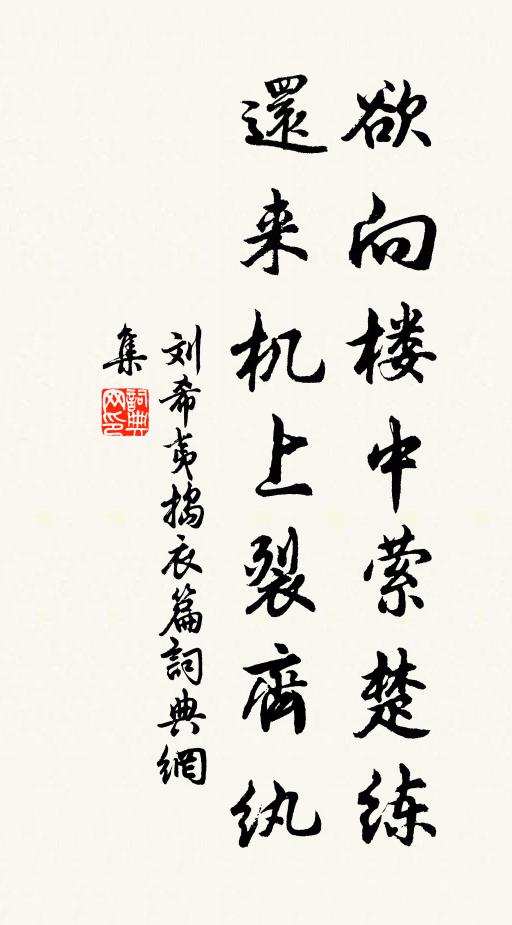 欲向楼中萦楚练
還来机上裂齊纨
刘希夷搗衣篇詞典網
集
詞典
网印